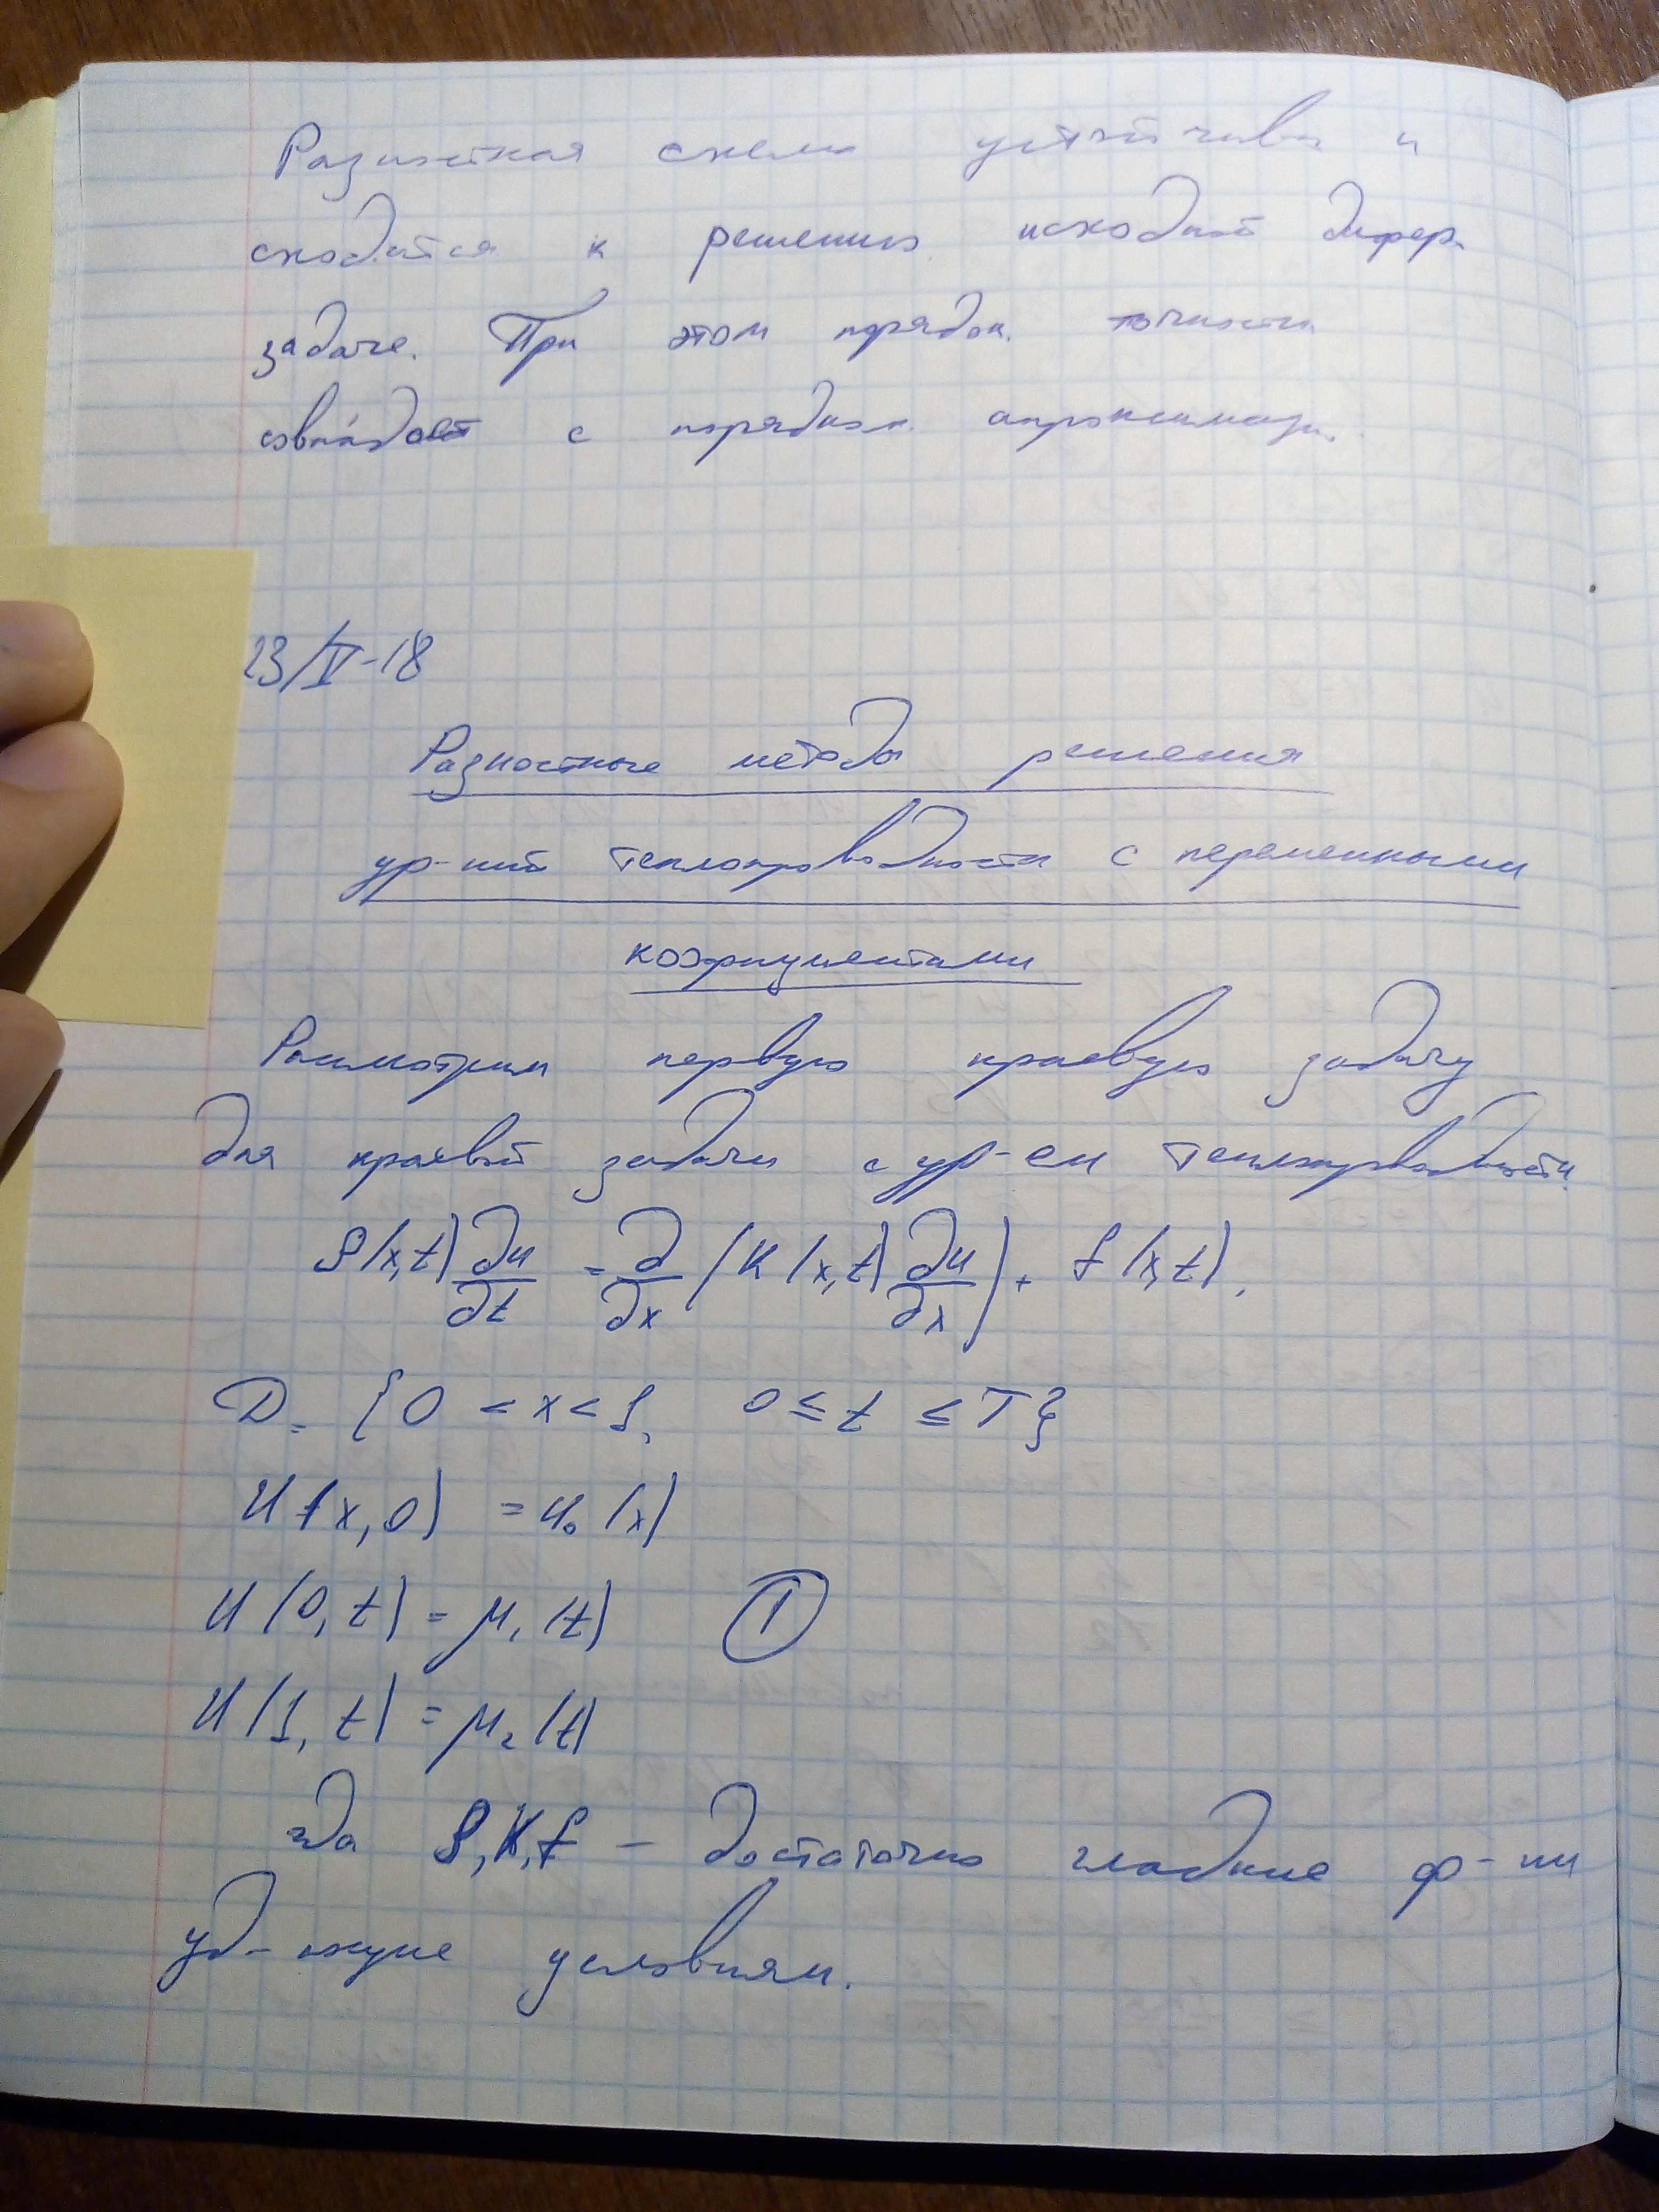 Разностная схема устойчива и
сходится к решению исходной дифер.
задаче. При этом порядок точности
совпадает с порядком апроксимаци.
23/V-18
Разностные методы решения
ур-ний теплопроводности с переменными
коэфициентами
Расмотрим первую краевую задачу
для краевой задачи с ур-ем теплопроводности.
ρ(x,t) ∂u/∂t = ∂/∂x (K(x,t) ∂u/∂x) + f(x,t).
D = {0 < x < 1, 0 ≤ t ≤ T}
U(x,0) = u₀(x)
U(0,t) = μ₁(t) ①
U(1,t) = μ₂(t)
где ρ, K, f – достаточно гладкие ф-ии
уд-ющие условиям.